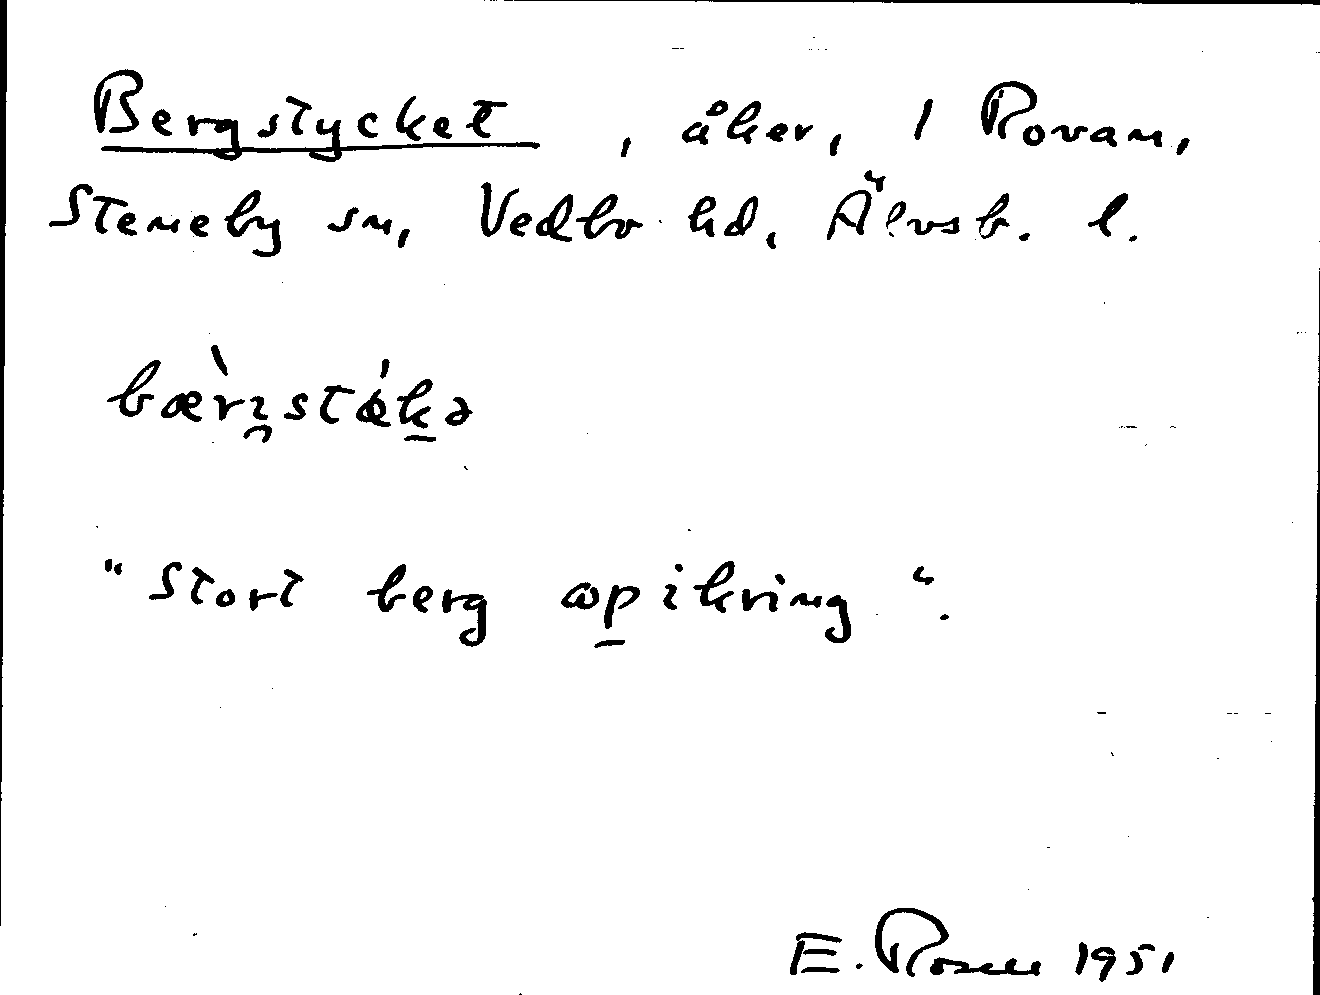 Bergstycket, åker, 1 Rovan,
Steneby sn, Vedbo hd, Älvsb. l.
"Stort berg ωpikring".
E. Rosell 1951